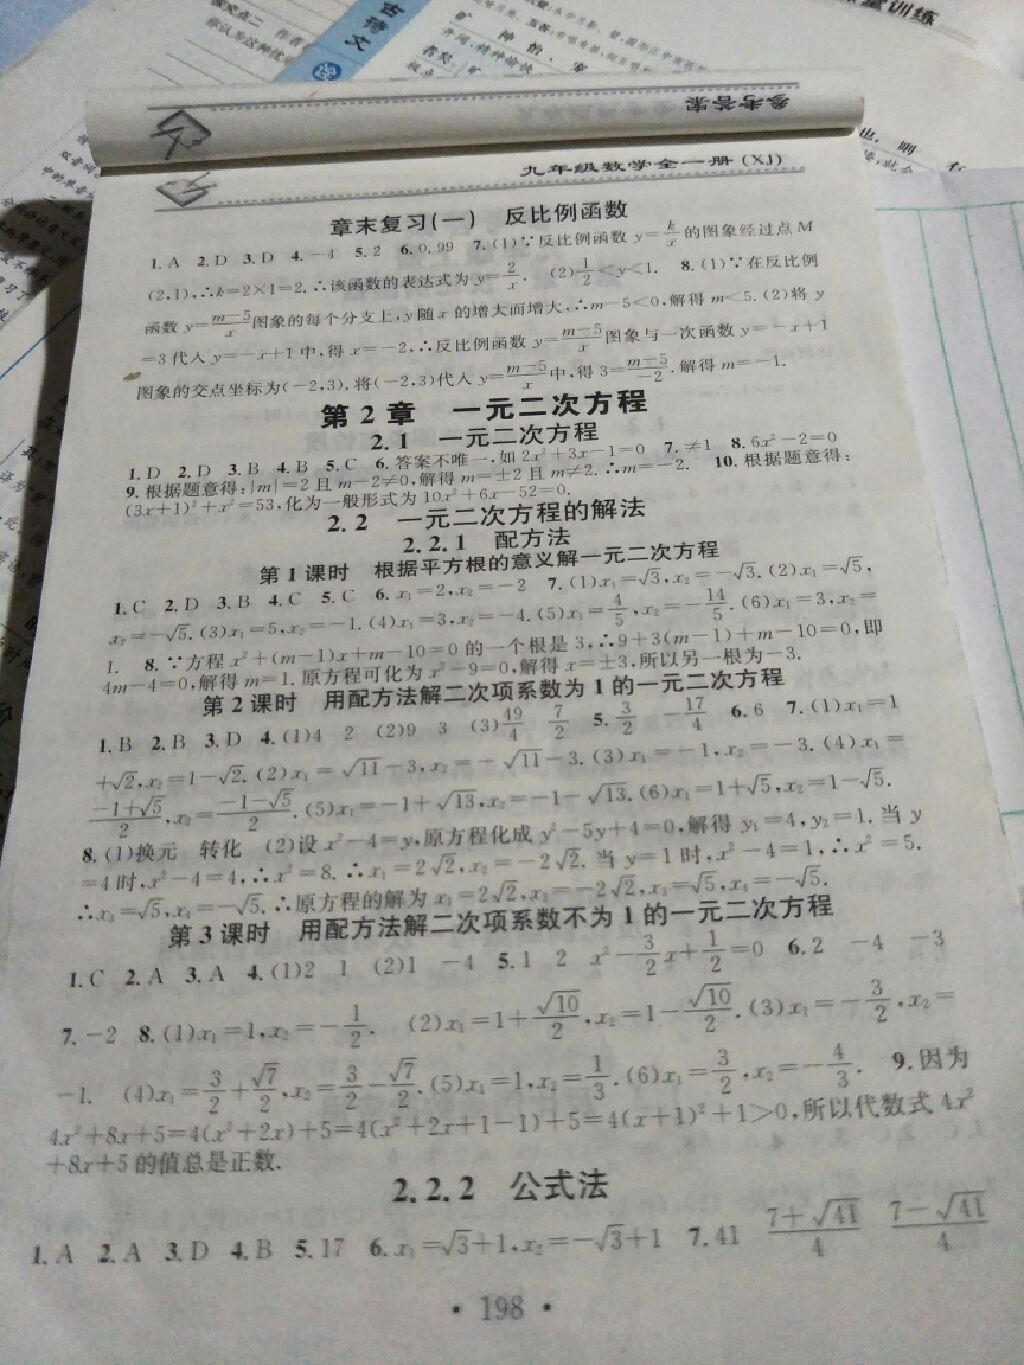 参考答案
九年级数学全一册(XJ)
章末复习(一) 反比例函数
1. A 2. D 3. D 4. −4 5. 2 6. 0.99 7. (1)∵反比例函数 y=k/x 的图象经过点 M
(2,1),∴k=2×1=2.∴该函数的表达式为 y=2/x. (2)1/2<y<1. 8. (1)∵在反比例
函数 y=m−5/x 图象的每个分支上,y 随 x 的增大而增大,∴m−5<0,解得 m<5. (2)将 y
=3 代入 y=−x+1 中,得 x=−2,∴反比例函数 y=m−5/x 图象与一次函数 y=−x+1
图象的交点坐标为(−2,3).将(−2,3)代入 y=m−5/x 中,得 3=m−5/−2.解得 m=−1.
第 2 章 一元二次方程
2.1 一元二次方程
1. D 2. D 3. B 4. B 5. C 6. 答案不唯一,如 2x²+3x−1=0 7. ≠1 8. 6x²−2=0
9. 根据题意得:|m|=2 且 m−2≠0,解得 m=±2 且 m≠2.∴m=−2. 10. 根据题意得:
(3x+1)²+x²=53,化为一般形式为 10x²+6x−52=0.
2.2 一元二次方程的解法
2.2.1 配方法
第 1 课时 根据平方根的意义解一元二次方程
1. C 2. D 3. B 4. C 5. C 6. x₁=2,x₂=−2 7. (1)x₁=√3,x₂=−√3. (2)x₁=√5,
x₂=−√5. (3)x₁=5,x₂=−1. (4)x₁=3,x₂=−4. (5)x₁=4/5,x₂=−14/5. (6)x₁=3,x₂=
1. 8. ∵方程 x²+(m−1)x+m−10=0 的一个根是 3,∴9+3(m−1)+m−10=0,即
4m−4=0,解得 m=1.原方程可化为 x²−9=0,解得 x=±3.所以另一根为−3.
第 2 课时 用配方法解二次项系数为 1 的一元二次方程
1. B 2. B 3. D 4. (1)4 2 (2)9 3 (3)49/4 7/2 5. 3/2 −17/4 6. 6 7. (1)x₁=1
+√2,x₂=1−√2. (2)x₁=√11−3,x₂=−√11−3. (3)x₁=−1,x₂=−3. (4)x₁=
−1+√5/2,x₂=−1−√5/2. (5)x₁=−1+√13,x₂=−1−√13. (6)x₁=1+√5,x₂=1−√5.
8. (1)换元 转化 (2)设 x²−4=y,原方程化成 y²−5y+4=0,解得 y₁=4,y₂=1.当 y
=4 时,x²−4=4,∴x²=8.∴x₁=2√2,x₂=−2√2.当 y=1 时,x²−4=1,∴x²=5.
∴x₃=√5,x₄=−√5.∴原方程的解为 x₁=2√2,x₂=−2√2,x₃=√5,x₄=−√5.
第 3 课时 用配方法解二次项系数不为 1 的一元二次方程
1. C 2. A 3. A 4. (1)2 1 (2)1 −4 5. 1 2 x²−3/2x+1/2=0 6. 2 −4 −3
7. −2 8. (1)x₁=1,x₂=−1/2. (2)x₁=1+√10/2,x₂=1−√10/2. (3)x₁=−3/2,x₂=
−1. (4)x₁=3/2+√7/2,x₂=3/2−√7/2. (5)x₁=1,x₂=1/3. (6)x₁=3/2,x₂=−4/3. 9. 因为
4x²+8x+5=4(x²+2x)+5=4(x²+2x+1−1)+5=4(x+1)²+1>0,所以代数式 4x²
+8x+5 的值总是正数.
2.2.2 公式法
1. A 2. A 3. D 4. B 5. 17 6. x₁=√3+1,x₂=−√3+1 7. 41 7+√41/4 7−√41/4
· 198 ·